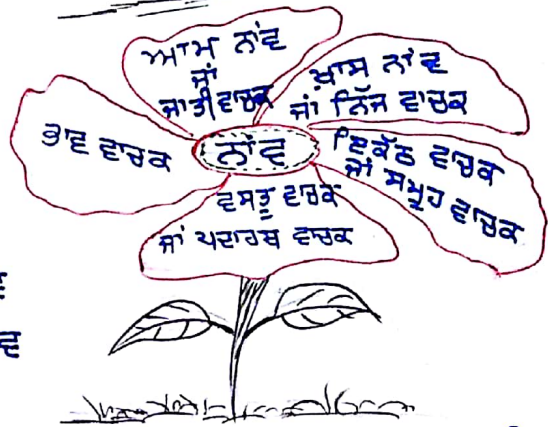 ਆਮ ਨਾਂਵ
ਜਾਂ
ਜਾਤੀਵਾਚਕ
ਖ਼ਾਸ ਨਾਂਵ
ਜਾਂ ਨਿੱਜ ਵਾਚਕ
ਭਾਵ ਵਾਚਕ
ਨਾਂਵ
ਇਕੱਠ ਵਾਚਕ
ਜਾਂ ਸਮੂਹ ਵਾਚਕ
ਵਸਤੂ ਵਾਚਕ
ਜਾਂ ਪਦਾਰਥ ਵਾਚਕ